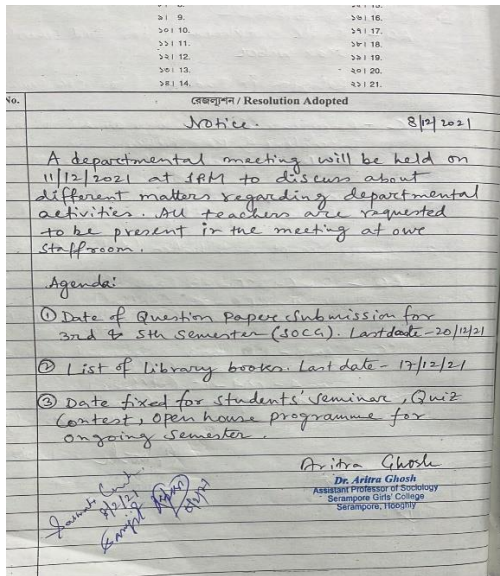 ৯। 9.
১০। 10.
১১। 11.
১২। 12.
১৩। 13.
১৪। 14.
১৬। 16.
১৭। 17.
১৮। 18.
১৯। 19.
২০। 20.
২১। 21.
No.
রেজল্যুশন / Resolution Adopted
Notice. 8/12/2021
A departmental meeting will be held on
11/12/2021 at 1PM to discuss about
different matters regarding departmental
activities. All teachers are requested
to be present in the meeting at our
staffroom.
Agenda:
① Date of Question Paper Submission for
3rd & 5th Semester (SOCG). Last date - 20/12/21
② List of library books. Last date - 17/12/21
③ Date fixed for students' seminar, Quiz
Contest, Open house programme for
ongoing semester.
Aritra Ghosh
Dr. Aritra Ghosh
Assistant Professor of Sociology
Serampore Girls' College
Serampore, Hooghly